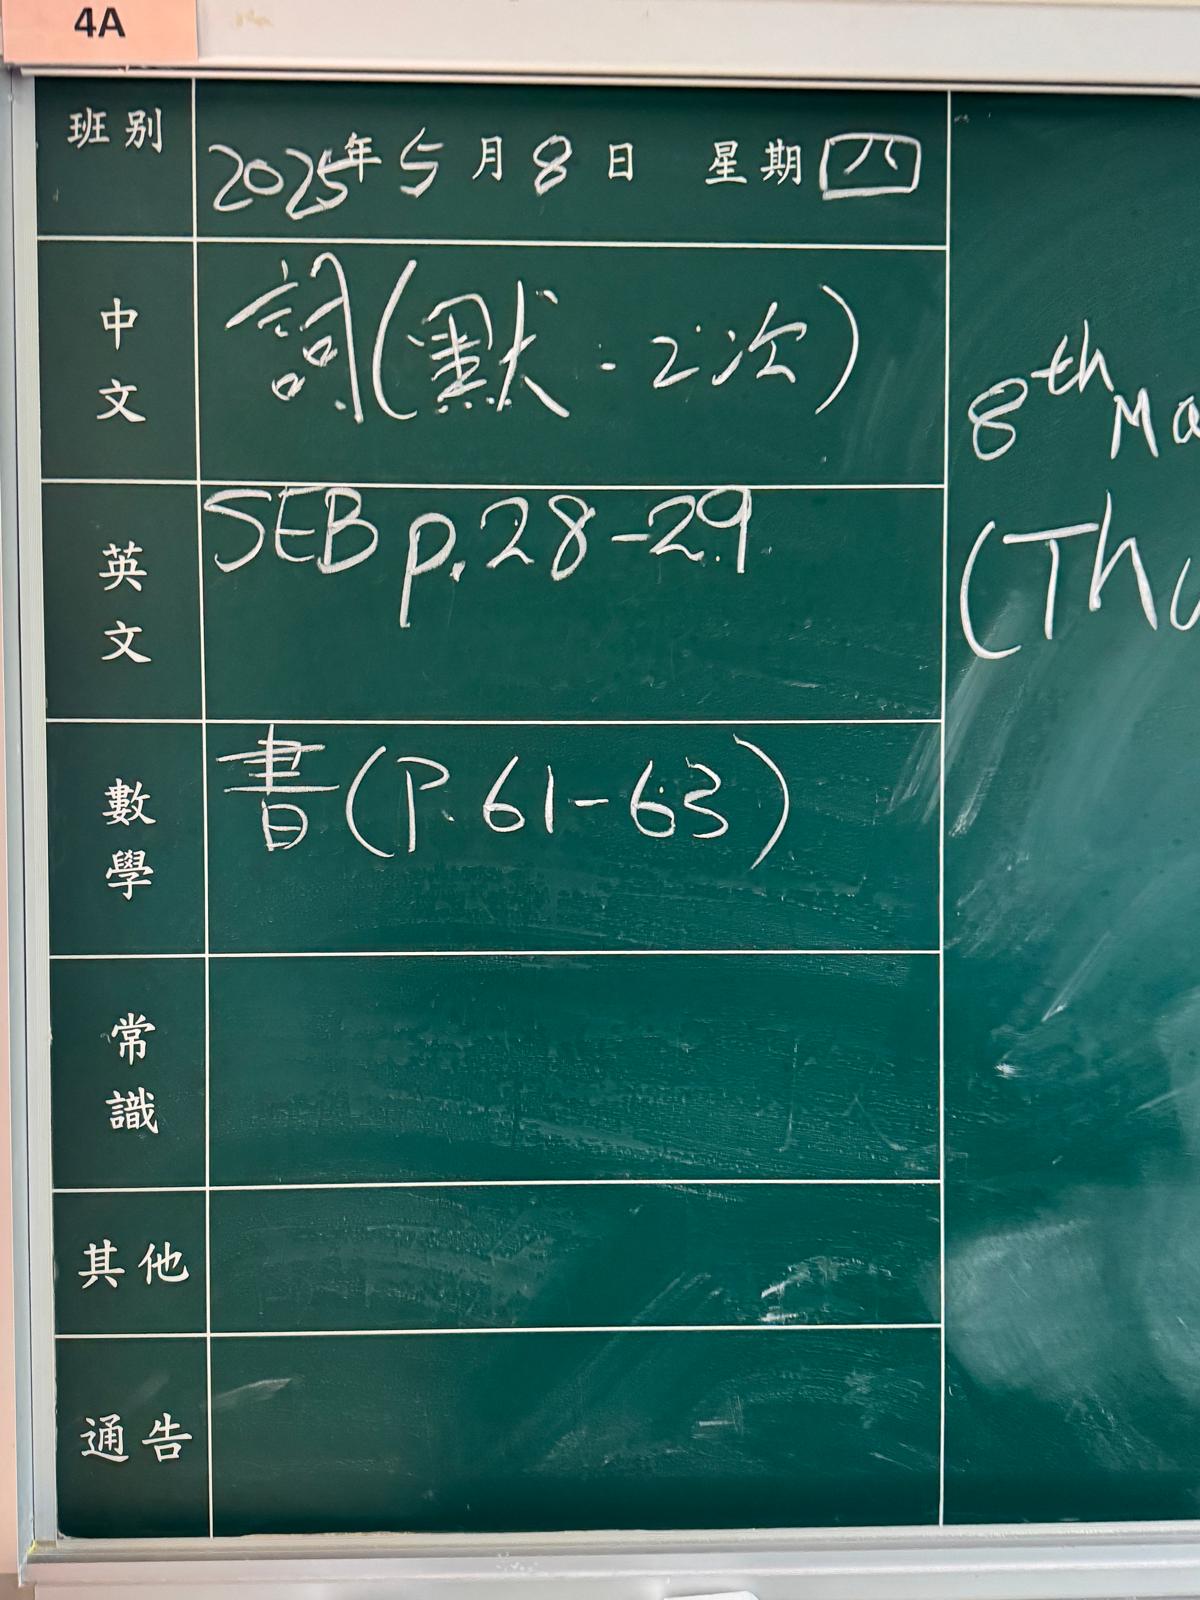 4A
班別
2025年5月8日 星期四
中文
詞(默-2次)
英文
SEB p.28-29
數學
書(P.61-63)
常識
其他
通告
8th Ma
(Thu